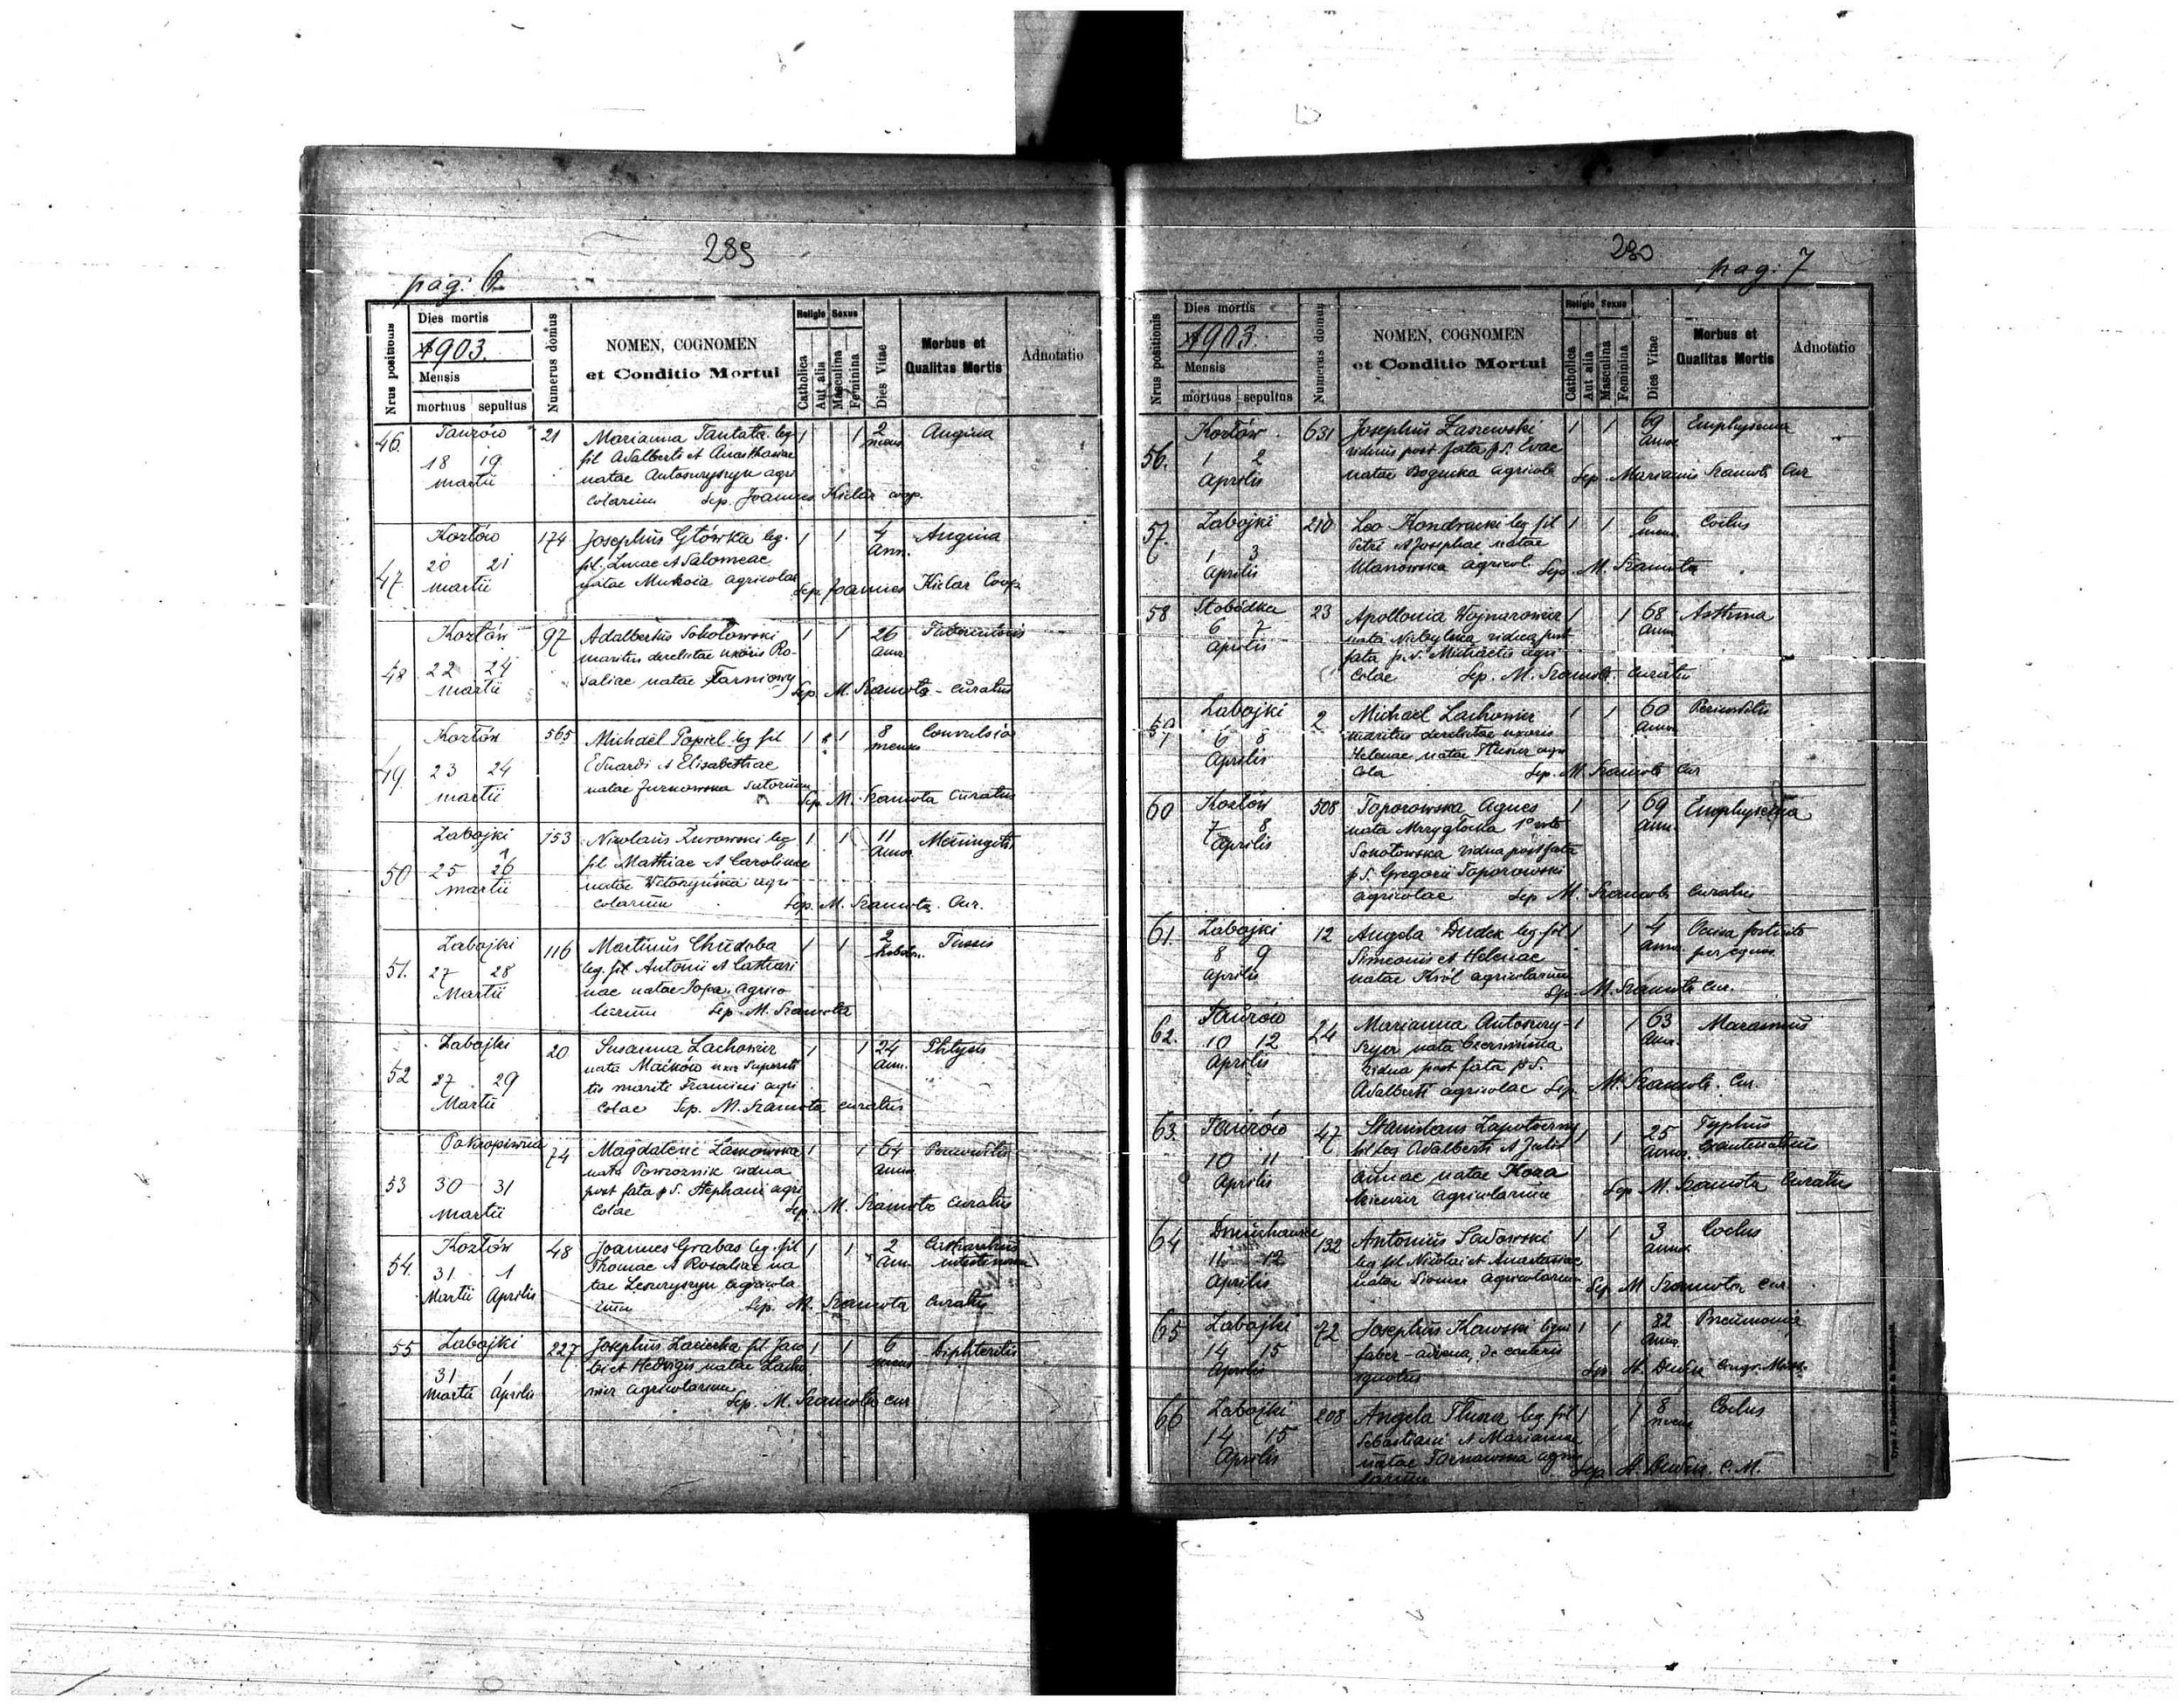 289
pag: 6.
Nrus positionis
Dies mortis
1903.
Mensis
mortuus sepultus
Numerus domus
NOMEN, COGNOMEN
et Conditio Mortui
Religio Sexus
Catholica
Aut alia
Masculina
Feminina
Dies Vitae
Morbus et
Qualitas Mortis
Adnotatio
46. Taurów 21 Marianna Tantała leg. 1 1 2 Angina
fil Adalberti et Anasthasiae mens
18 19 natae Antoszryszyn agri
martii colarum Sep. Joannes Kielar coop.
Kozłów 174 Josephus Główka leg. 1 1 4 Angina
20 21 fil. Lucae et Salomeae Ann.
47. martii natae agricolae Sep. Joannes Kielar Coop
Kozłów 97 Adalbertus Sokołowski 1 1 26 Tuberculosis
maritus derelictae uxoris Ro- ann.
48 22 24 saliae natae Tarniowy
martii Sep. M. Szamota - curatus
Kozłów 565 Michaël Popiel leg fil 1 1 8 Convulsia
Eduardi et Elisabethae menses
49. 23 24 natae Żurkowska sutorum
martii Sep. M. Szamota Curatus
Zabojki 153 Nicolaus Żurowski leg 1 1 11 Meningitis
fil Mathiae et Carolinae Annos
50 25 26 natae agri
martii colarum Sep. M. Szamota Cur.
Zabojki 116 Martinus Chudoba 1 1 2 Tussis
51. 27 28 leg. fil Antonii et Cathari hebdom.
Martii nae natae agrico
larum Sep. M. Szamota
Zabojki 20 Susanna Lachowicz 1 1 24 Phtysis
nata Maćków uxor supersti ann.
52 27 29 tis mariti Francisci agri
Martii colae Sep. M. Szamota curatus
Pokropiwna 74 Magdalene Laskowska 1 1 64
nata Powroźnik vidua annos
53 30 31 post fata p d. Stephani agri
Martii colae Sep. M. Szamota Curatus
Kozłów 48 Joannes Grabas leg. fil 1 1 2
54. 31 1 Thomae et Rosaliae na Ann.
Martii Aprilis tae agricola
rum Sep. M. Szamota Curatus
55 Zabojki 227 Josephus fil Jaco 1 1 6 Diphteritis
31 1 bi et Hedvigis natae Lacho mens
Martii Aprilis wicz agricolarum
Sep. M. Szamota cur
290
pag. 7
Nrus positionis
Dies mortis
1903.
Mensis
mortuus sepultus
Numerus domus
NOMEN, COGNOMEN
et Conditio Mortui
Religio Sexus
Catholica
Aut alia
Masculina
Feminina
Dies Vitae
Morbus et
Qualitas Mortis
Adnotatio
Kozłów 631 Josephus Laszewski 1 1 69 Emphysema
56. 1 2 viduus post fata p d. Evae Annos
Aprilis natae Bogucka agricola Sep. Marianus Szamota Cur
57. Zabojki 210 Leo Kondracki leg fil 1 1 6 Coelus
1 3 Petri et Josephae natae mens.
Aprilis Ulanowska agricol. Sep. M. Szamota
58 Słobódka 23 Apollonia Wojnarowicz 1 1 68 Asthma
6 7 nata vidua post Ann.
Aprilis fata p. d. Michaelis agri
colae Sep. M. Szamota. Curatus
59 Zabojki 2 Michaël Lachowicz 1 1 60
6 8 maritus derelictae uxoris Annos
Aprilis Helenae natae Tłuscz agri
cola Sep. M. Szamota Cur
60 Kozłów 508 Toporowska Agnes 1 1 69 Emphysema
7 8 nata Mrzygłocka 1º voto Ann.
Aprilis Sokołowska vidua post fata
p d. Gregorii Toporowski
agricolae Sep M. Szamota Curatus
61. Zabojki 12 Angela Dudek leg. fil 1 1 4 Occisa fortuito
8 9 Simeonis et Helenae annos per equos
Aprilis natae Król agricolarum
Sep. M. Szamota Cur.
62. Taurów 24 Marianna Antoszry- 1 1 63 Marasmus
10 12 szyn nata Czerwińska Ann.
Aprilis vidua post fata p d.
Adalberti agricolae Sep. M. Szamota. Cur.
63. Taurów 47 Stanislaus Zapotoczny 1 1 25 Typhus
10 11 fil leg Adalberti et Juli Annos. Exantematicus
Aprilis annae natae Koza
kiewicz agricolarum Sep. M. Szamota Curatus
64 Dmuchawiec 132 Antonius Sadowski 1 1 3 Coelus
11 12 leg fil Nicolai et Anastasiae annos.
Aprilis natae agricolarum Sep M Szamota cur.
65 Zabojki 72 Josephus Kawski 1 1 82 Pneumonia
14 15 faber - advena, de caeteris Annos
Aprilis ignotus Sep. Congr. Miss.
66 Zabojki 208 Angela Tłuscz leg. fil 1 1 8 Coelus
14 15 Sebastiani et Mariannae mens
Aprilis natae Tarnawska agrico
larum Sep. C. M.